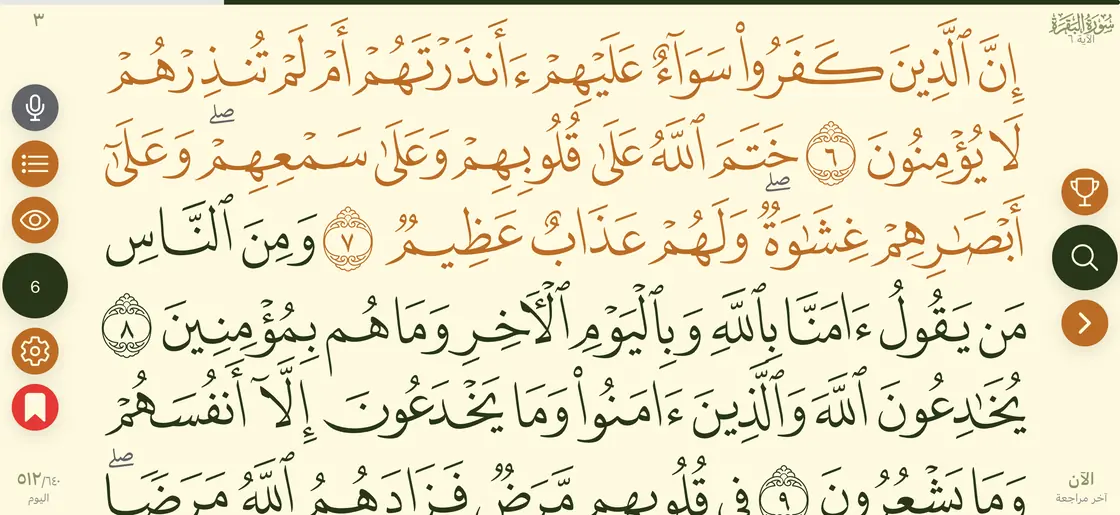 ٣
سورة البقرة
الآية ٦
إِنَّ ٱلَّذِينَ كَفَرُوا۟ سَوَآءٌ عَلَيْهِمْ ءَأَنذَرْتَهُمْ أَمْ لَمْ تُنذِرْهُمْ
لَا يُؤْمِنُونَ ٦ خَتَمَ ٱللَّهُ عَلَىٰ قُلُوبِهِمْ وَعَلَىٰ سَمْعِهِمْ ۖ وَعَلَىٰٓ
أَبْصَـٰرِهِمْ غِشَـٰوَةٌ ۖ وَلَهُمْ عَذَابٌ عَظِيمٌ ٧ وَمِنَ ٱلنَّاسِ
مَن يَقُولُ ءَامَنَّا بِٱللَّهِ وَبِٱلْيَوْمِ ٱلْـَٔاخِرِ وَمَا هُم بِمُؤْمِنِينَ ٨
يُخَـٰدِعُونَ ٱللَّهَ وَٱلَّذِينَ ءَامَنُوا۟ وَمَا يَخْدَعُونَ إِلَّآ أَنفُسَهُمْ
وَمَا يَشْعُرُونَ ٩ فِى قُلُوبِهِم مَّرَضٌ فَزَادَهُمُ ٱللَّهُ مَرَضًا ۖ
6
٥١٢/٦٤٠
اليوم
الآن
آخر مراجعة